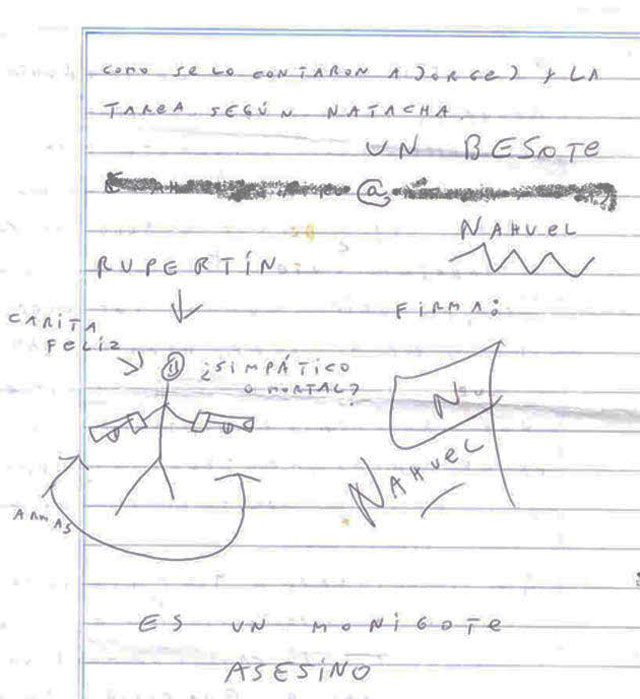 COMO SE LO CONTARON A JORGE) Y LA
TAREA SEGÚN NATACHA.
UN BESOTE
@
NAHUEL
RUPERTÍN
FIRMA:
CARITA
FELIZ
¿SIMPÁTICO
O MORTAL?
N
NAHUEL
ARMAS
ES UN MONIGOTE
ASESINO